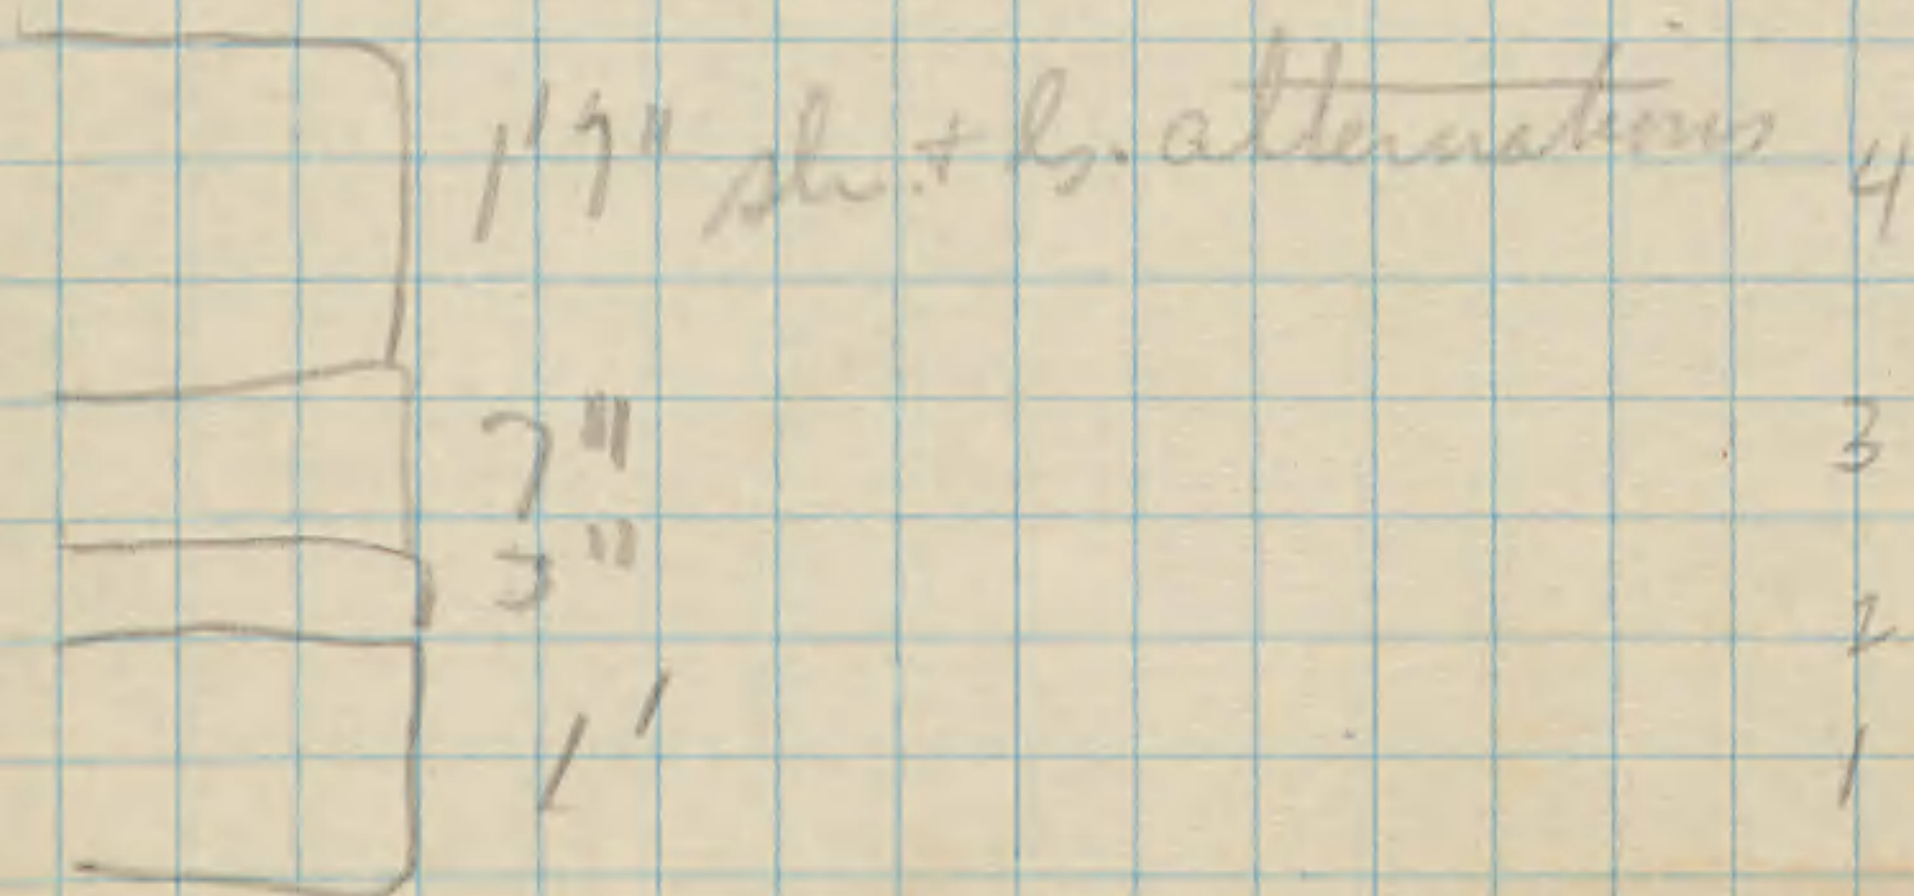 1'9" sh. + ls. alternations 4
7" 3
3" 2
1' 1